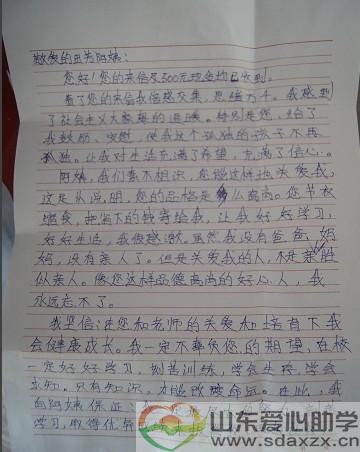 敬爱的王芳阿姨:
您好!您的来信及300元现金均已收到。
看了您的来信我倍感交集,思绪万千。我感到
了社会主义大家庭的温暖。特别是您,给了
我鼓励、安慰,使我这个孤独的孩子不再
孤独。让我对生活充满了希望,充满了信心。
阿姨,我们素不相识,您能这样地关爱我,
这足以说明,您的品格是多么高尚。您节衣
缩食,把省下的钱寄给我,让我好好学习,
好好生活,我很感激。虽然我没有爸爸、妈
妈,没有亲人了。但是关爱我的人,不是亲人胜
似亲人。像您这样品德高尚的好心人,我
永远忘不了。
我坚信:在您和老师的关爱和培育下我
会健康成长。我一定不辜负您的期望,在校
一定好好学习,刻苦训练,学会生存,学会
求知。只有知识,才能改变命运。在此,我
向阿姨保证
学习,取得优异
山东爱心助学
www.sdaxzx.cn